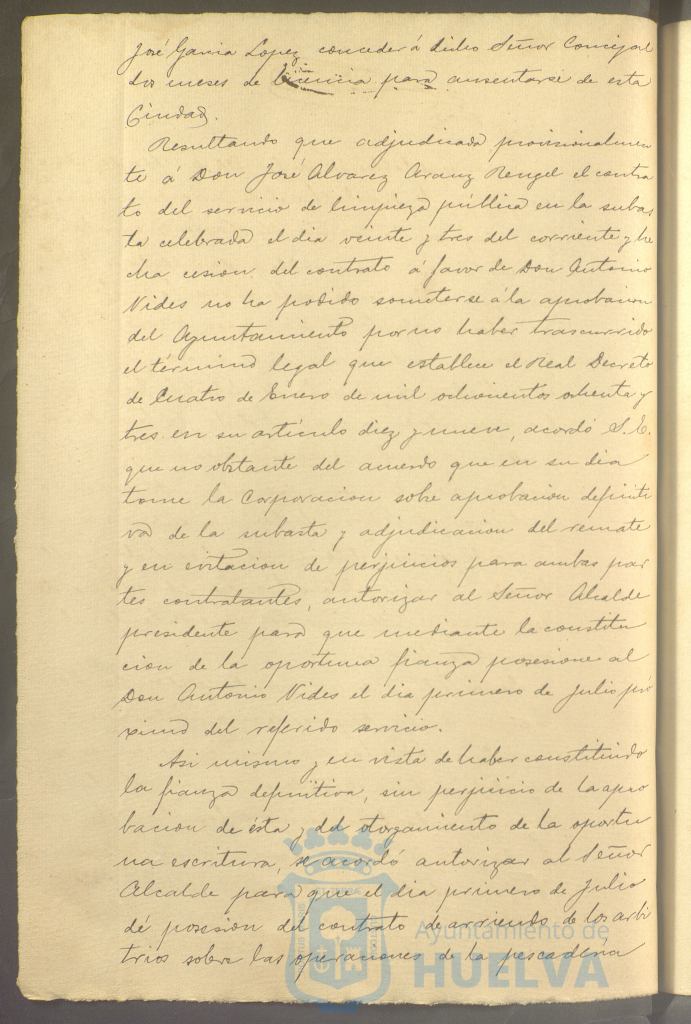 José Garcia Lopez conceder á dicho Señor Concejal
dos meses de licencia para ausentarse de esta
Ciudad.
Resultando que adjudicada provisionalmen
te á Don José Alvarez Aranz Rengel el contra
to del servicio de limpieza pública en la subas
ta celebrada el dia veinte y tres del corriente y he
cha cesion del contrato á favor de Don Antonio
Vides no ha podido someterse á la aprobacion
del Ayuntamiento por no haber trascurrido
el término legal que establece el Real Decreto
de Cuatro de Enero de mil ochocientos ochenta y
tres en su artículo diez y nueve, acordó S.E.
que no obstante del acuerdo que en su dia
tome la Corporacion sobre aprobacion definiti
va de la subasta y adjudicacion del remate
y en evitacion de perjuicios para ambas par
tes contratantes, autorizar al Señor Alcalde
presidente para que mediante la constitu
cion de la oportuna fianza posesione al
Don Antonio Vides el dia primero de Julio pró
ximo del referido servicio.
Asi mismo y en vista de haber constituido
la fianza definitiva, sin perjuicio de la apro
bacion de ésta y del otorgamiento de la oportu
na escritura, se acordó autorizar al Señor
Alcalde para que el dia primero de Julio
dé posesion del contrato de arriendo de los arbi
trios sobre las operaciones de la pescadería
Ayuntamiento de
HUELVA